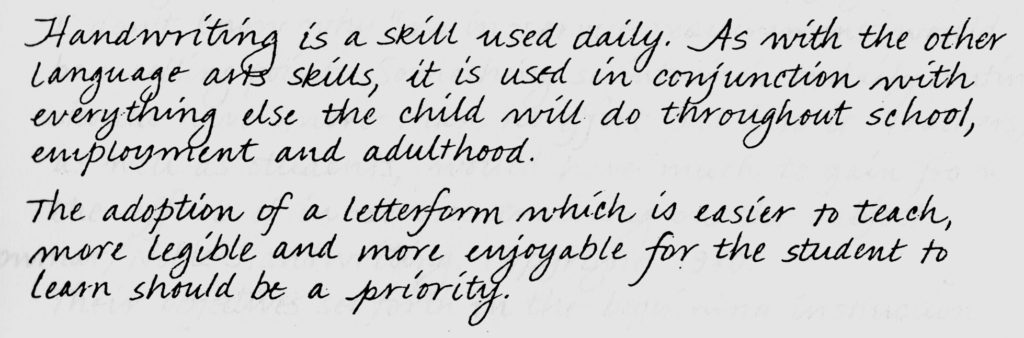 Handwriting is a skill used daily. As with the other
language arts skills, it is used in conjunction with
everything else the child will do throughout school,
employment and adulthood.
The adoption of a letterform which is easier to teach,
more legible and more enjoyable for the student to
learn should be a priority.